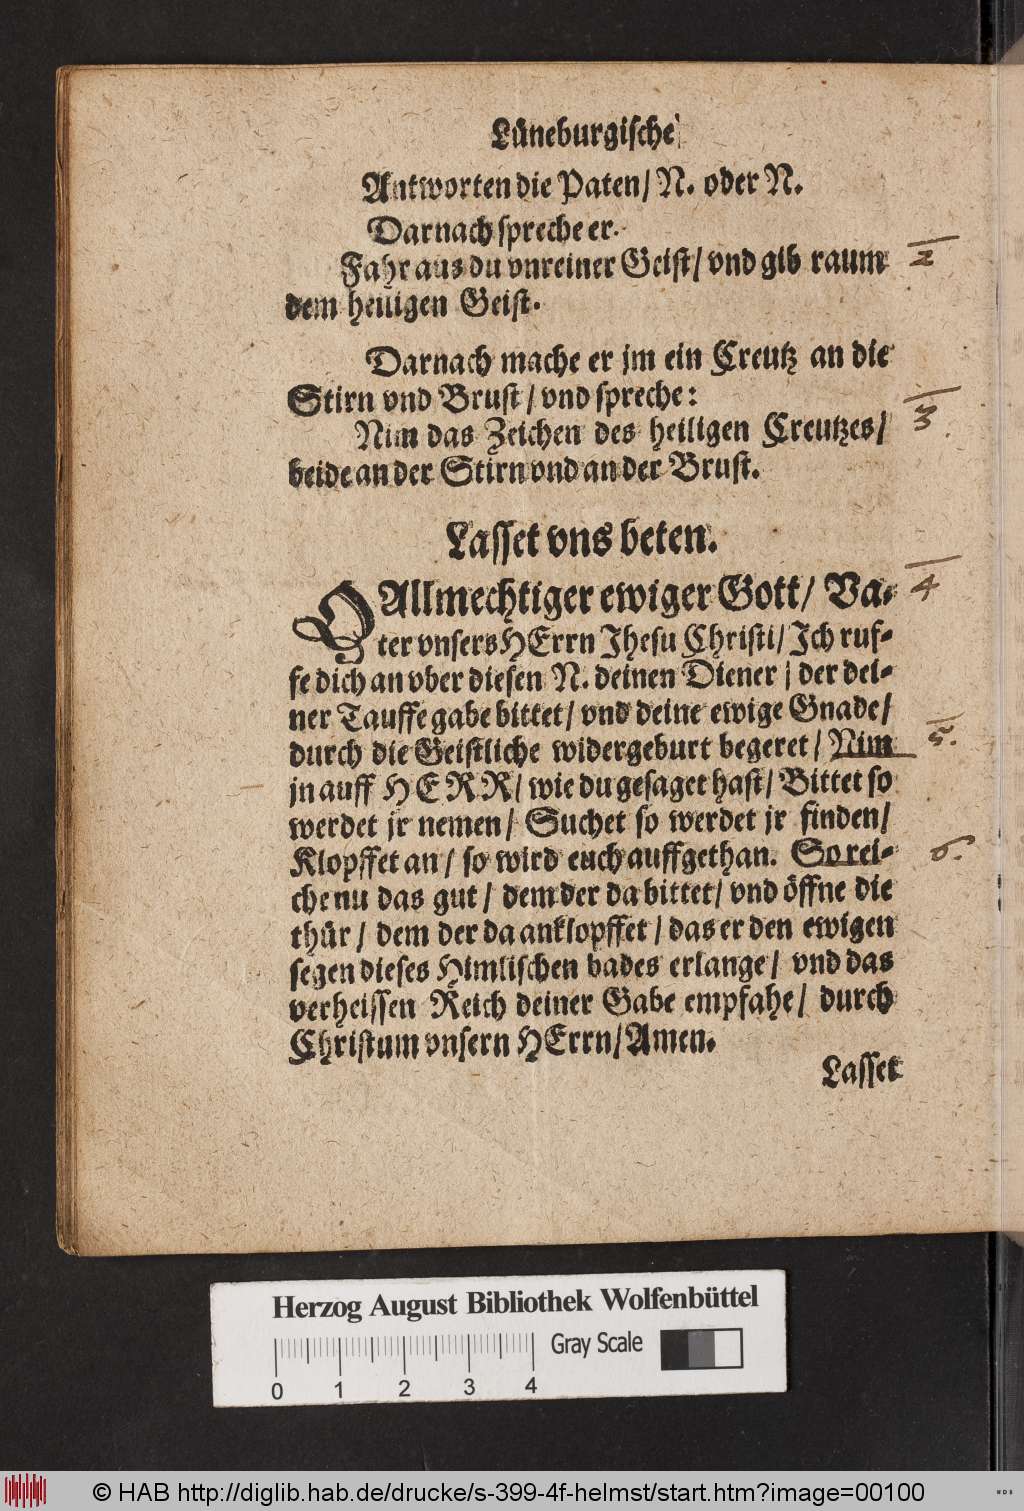 Lüneburgische
Antworten die Paten/ N. oder N.
Darnach spreche er.
Fahr aus du vnreiner Geist/ vnd gib raum
dem heiligen Geist.
2
Darnach mache er jm ein Creutz an die
Stirn vnd Brust/ vnd spreche:
Nim das Zeichen des heiligen Creutzes/
beide an der Stirn vnd an der Brust.
3
Lasset vns beten.
O Allmechtiger ewiger Gott/ Va-
ter vnsers HErrn Jhesu Christi/ Ich ruf-
fe dich an vber diesen N. deinen Diener/ der dei-
ner Tauffe gabe bittet/ vnd deine ewige Gnade/
durch die Geistliche widergeburt begeret/ Nim
jn auff HERR/ wie du gesaget hast/ Bittet so
werdet jr nemen/ Suchet so werdet jr finden/
Klopffet an/ so wird euch auffgethan. So rei-
che nu das gut/ dem der da bittet/ vnd öffne die
thür/ dem der da anklopffet/ das er den ewigen
segen dieses Himlischen bades erlange/ vnd das
verheissen Reich deiner Gabe empfahe/ durch
Christum vnsern HErrn/ Amen.
4
5.
6.
Lasset
Herzog August Bibliothek Wolfenbüttel
Gray Scale
0 1 2 3 4
© HAB http://diglib.hab.de/drucke/s-399-4f-helmst/start.htm?image=00100